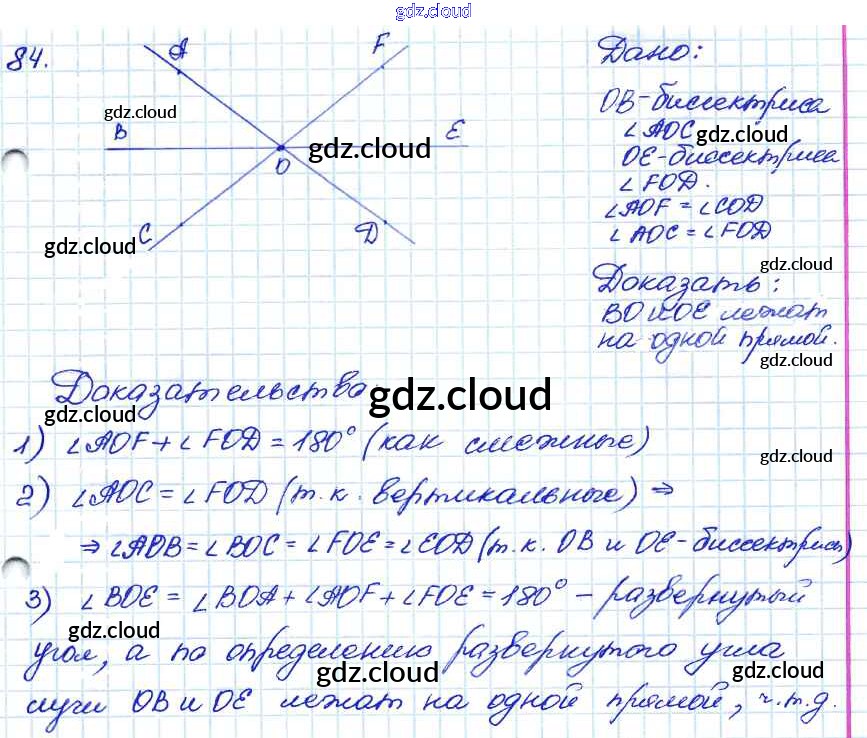 gdz.cloud
84.
A
F
gdz.cloud
B
E
O
gdz.cloud
C
D
gdz.cloud
Дано:
OB-биссектриса
∠AOC gdz.cloud
OE-биссектриса
∠FOD.
∠AOF = ∠COD
∠AOC = ∠FOD
gdz.cloud
Доказать:
BO и OE лежат
на одной прямой.
gdz.cloud
Доказательство:
gdz.cloud
gdz.cloud
1) ∠AOF + ∠FOD = 180° (как смежные)
gdz.cloud
2) ∠AOC = ∠FOD (т.к. вертикальные) ⇒
⇒ ∠AOB = ∠BOC = ∠FOE = ∠EOD (т.к. OB и OE-биссектрисы)
3) ∠BOE = ∠BOA + ∠AOF + ∠FOE = 180° - развернутый
gdz.cloud
угол, а по определению развернутого угла
gdz.cloud
gdz.cloud
лучи OB и OE лежат на одной прямой, ч.т.д.